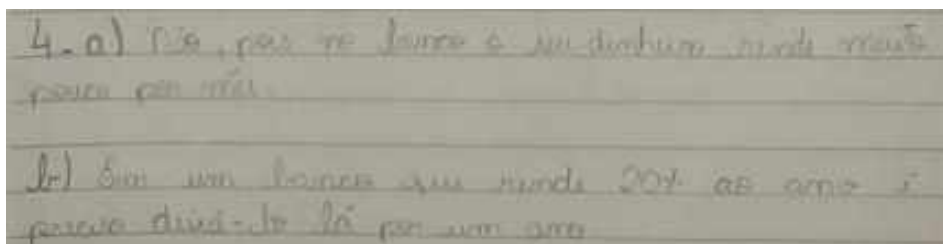 4-a) Não, pois no banco o seu dinheiro rende muito
pouco por mês.
b) Sim um banco que rende 20% ao ano é
preciso deixá-lo lá por um ano